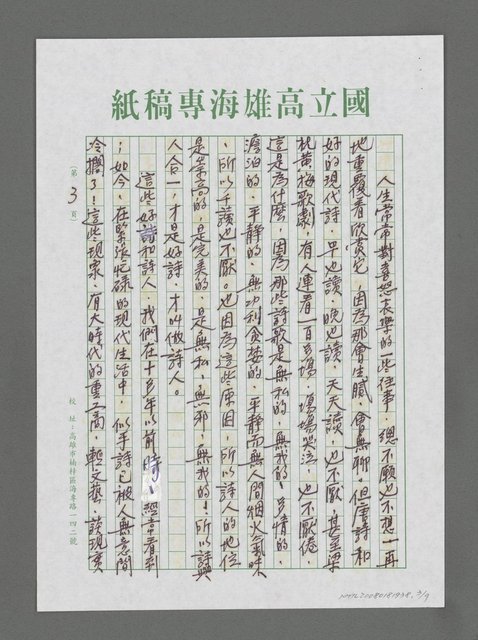 國立高雄海專稿紙
人生常常對喜怒哀樂的一些往事，總不願也不想一再
地重覆看欣賞它，因為那會生膩，會無聊。但唐詩和
好的現代詩，早也讀，晚也讀，天天讀，也不厭，甚至樂
杜黃梅歌劇，有人連看一百多場，場場哭泣，也不厭倦，
這是為什麼，因為那些詩歌是無私的，無我的，多情的，
澹泊的，平靜的，無功利貪婪的，平靜而無人間烟火氣味
，所以千讀也不厭。也因為這些原因，所以詩人的地位
是崇高的，是完美的，是無私，無邪，無我的！所以詩與
人合一，才是好詩，才叫做詩人。
這些好詩和詩人，我們在十多年以前時，經常看到
；如今，在緊張忙碌的現代生活中，似乎詩已被人無意間
冷擱了！這些現象，有大時代的重工商，輕文藝，發現實
（第 3 頁）
校址：高雄市楠梓區海專路一四二號
NMTL20080181938. 3/9